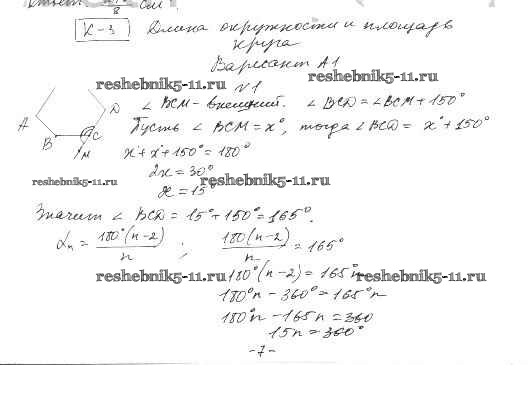 Ответ: 8 см
К-3 Длина окружности и площадь
круга
Вариант А1
reshebnik5-11.ru reshebnik5-11.ru
№1
∠ BCM - внешний. ∠ BCD = ∠BCM + 150°
Пусть ∠ BCM = x°, тогда ∠ BCD = x° + 150°
A B C D M
x + x + 150° = 180°
2x = 30°
reshebnik5-11.ru reshebnik5-11.ru
x = 15°
Значит ∠ BCD = 15° + 150° = 165°.
αn = 180°(n-2)/n ; 180(n-2)/n = 165°
reshebnik5-11.ru 180°(n-2) = 165°n reshebnik5-11.ru
180°n - 360° = 165°n
180°n - 165n = 360
15n = 360°
-7-